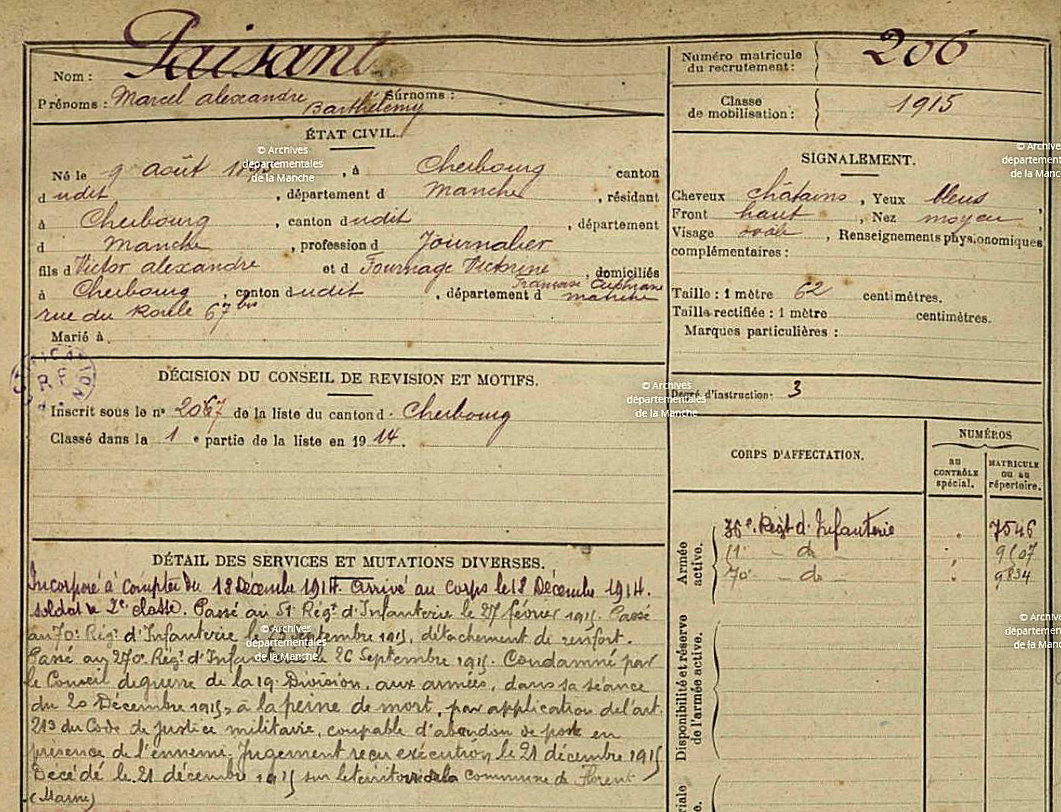 Nom : Paisant
Prénoms : Marcel Alexandre Surnoms :
Barthélemy
Numéro matricule du recrutement : 206
Classe de mobilisation : 1915
ÉTAT CIVIL.
Né le 9 août, à Cherbourg canton
dudit, département d Manche, résidant
à Cherbourg, canton dudit, département
d Manche, profession d Journalier
fils d Victor alexandre et d Fournage Victorine, domiciliés
à Cherbourg, canton dudit, département d manche
rue du Roule 67 bis
Marié à
SIGNALEMENT.
Cheveux châtains, Yeux bleus
Front haut, Nez moyen
Visage ovale, Renseignements physionomiques
complémentaires :
Taille : 1 mètre 62 centimètres.
Taille rectifiée : 1 mètre centimètres.
Marques particulières :
Degré d'instruction : 3
DÉCISION DU CONSEIL DE REVISION ET MOTIFS.
Inscrit sous le n° 2067 de la liste du canton d. Cherbourg
Classé dans la 1 e partie de la liste en 1914.
CORPS D'AFFECTATION.
NUMÉROS
AU CONTRÔLE spécial.
MATRICULE OU AU répertoire.
Armée active.
Régt d'Infanterie 7546
do
70e do 9834
Disponibilité et réserve de l'armée active.
DÉTAIL DES SERVICES ET MUTATIONS DIVERSES.
Incorporé à compter du 18 Décembre 1914. Arrivé au corps le 18 Décembre 1914.
soldat de 2e classe. Passé au Régt d'Infanterie le 27 février 1915. Passé
au 70e Régt d'Infanterie le 1915, détachement de renfort.
Passé au 270e Régt d'Infanterie le 26 Septembre 1915. Condamné par
le Conseil de guerre de la 19e Division, aux armées, dans sa séance
du 20 Décembre 1915, à la peine de mort, par application de l'art.
213 du Code de justice militaire, coupable d'abandon de poste en
présence de l'ennemi. Jugement reçu exécution le 21 décembre 1915
Décédé le 21 décembre 1915 sur le territoire de la commune de Florent
(Marne)
© Archives départementales de la Manche
© Archives départementales de la Manche
© Archives départementales de la Manche
© Archives départementales de la Manche
© Archives départementales de la Manche